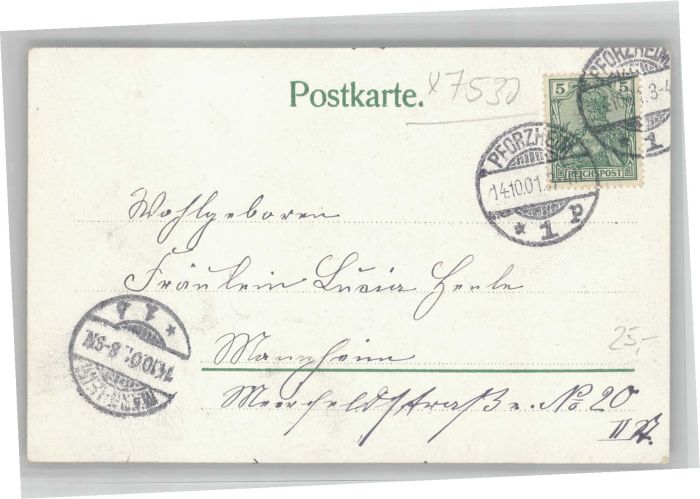 Postkarte.
x7530
5 5
REICHSPOST
PFORZHEIM
PFORZHEIM
14.10.01.
* 1 P
* 1
Wohlgeboren
Fräulein Luzia Henle
Mannheim
Meerfeldstraße No 20
II St.
25,-
14.10.01. 8-9N.
MANNHEIM